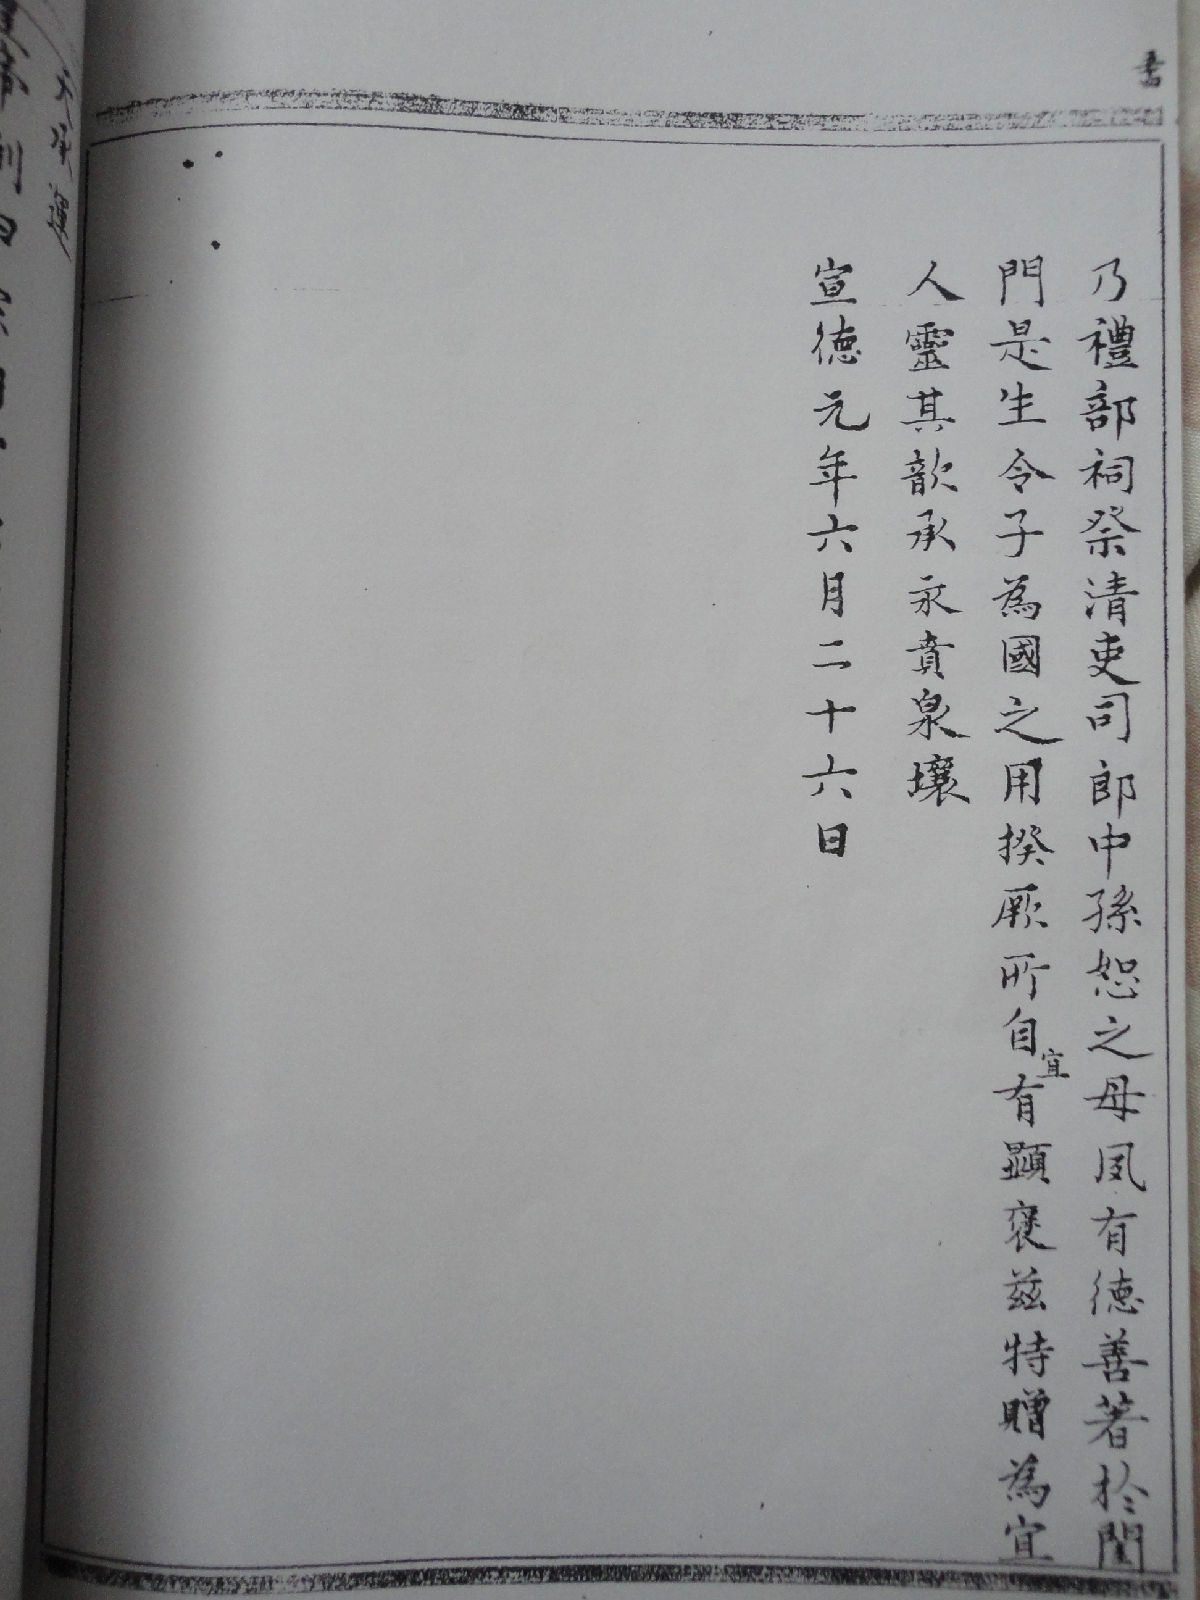 書
乃禮部祠祭清吏司郎中孫恕之母夙有德善著於閨
門是生令子為國之用揆厥所自宜有顯褒茲特贈為宜
人靈其歆承永賁泉壤
宣德元年六月二十六日
天承運
制曰